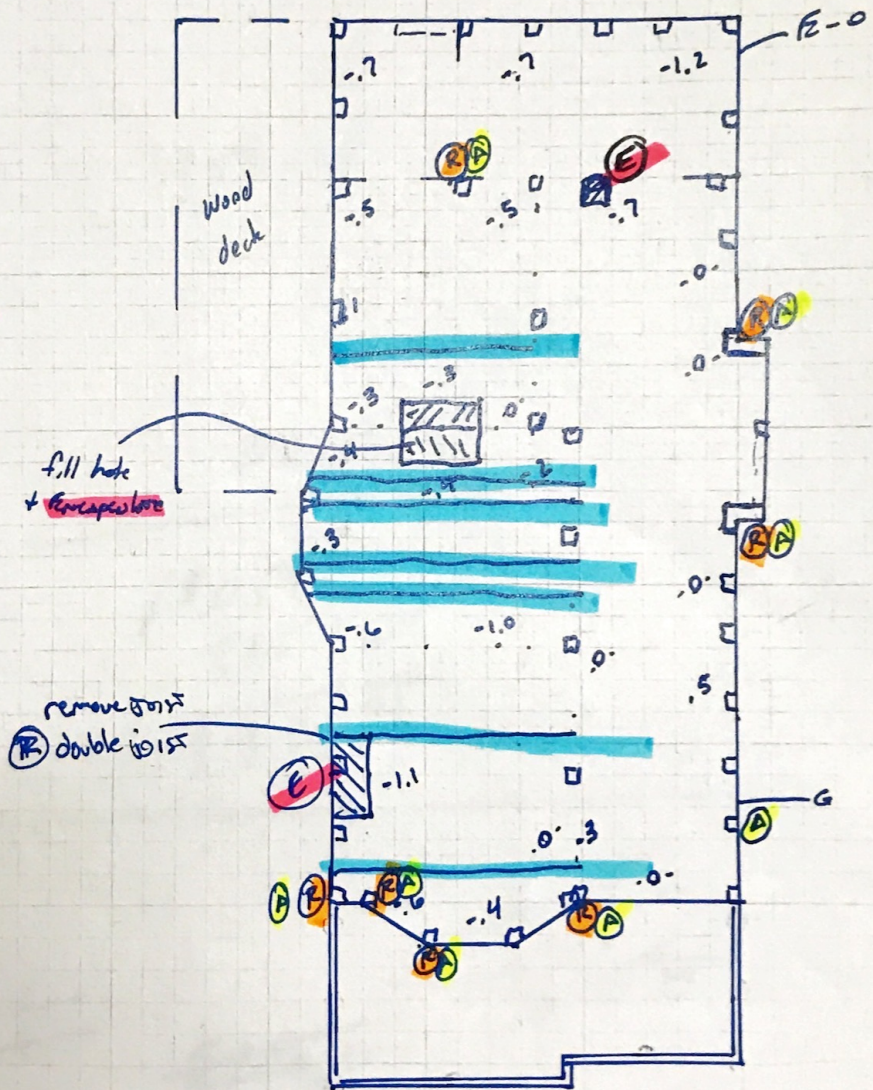 E-0
-.7
-.7
-1.2
R A
E
wood
deck
-.5
-.5
-.7
.0
R A
.1
.0
-.3
-.3
.0
-.4
fill hole
+ Encapsulate
-.2
-.3
R A
.0
-.6
-1.0
.0
.5
remove joist
R double joist
E
-1.1
G
A
.0
.3
.0
A R
R A
-.6
-.4
R A
R A